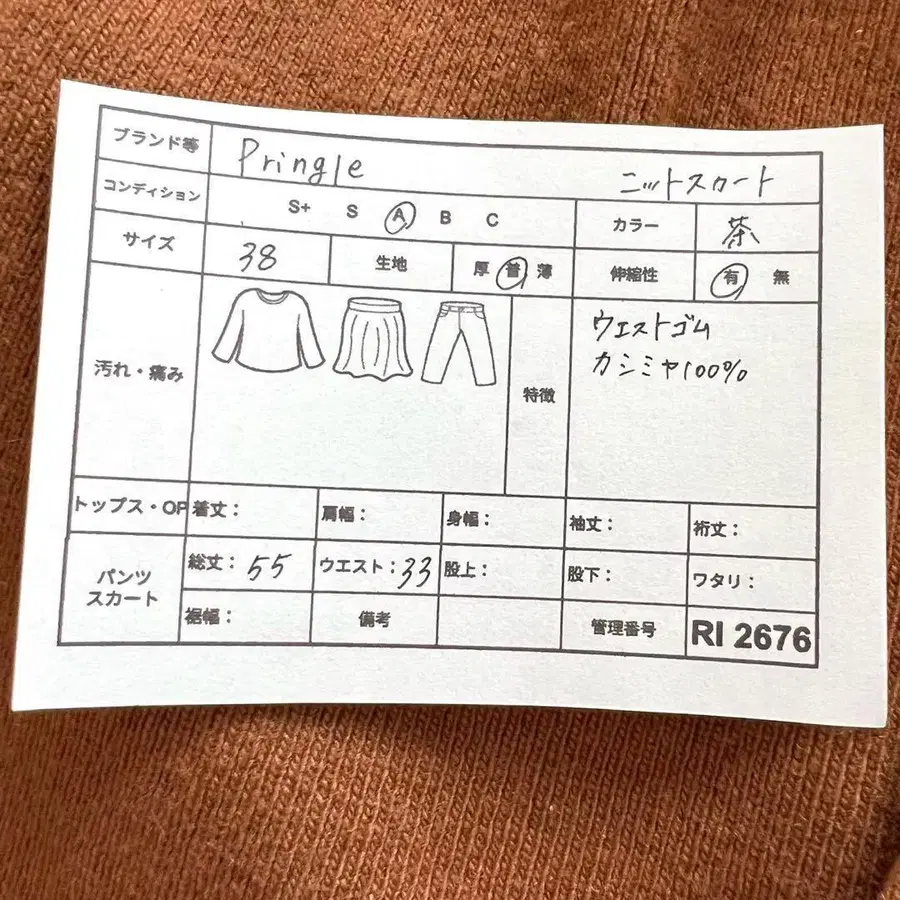 ブランド等 Pringle ニットスカート
コンディション S+ S A B C カラー 茶
サイズ 38 生地 厚 普 薄 伸縮性 有 無
汚れ・痛み 特徴 ウエストゴム
カシミヤ100%
トップス・OP 着丈: 肩幅: 身幅: 袖丈: 裄丈:
パンツ
スカート
総丈:55 ウエスト:33 股上: 股下: ワタリ:
裾幅: 備考 管理番号 RI 2676